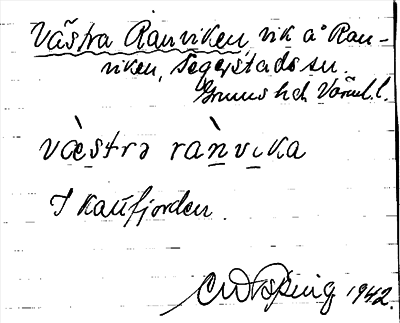 Västra Ranviken, vik å Ran-
viken, Segerstads sn.
Grums hd. Värml. l.
væstrə rànvıka
I Kattfjorden.
1942.